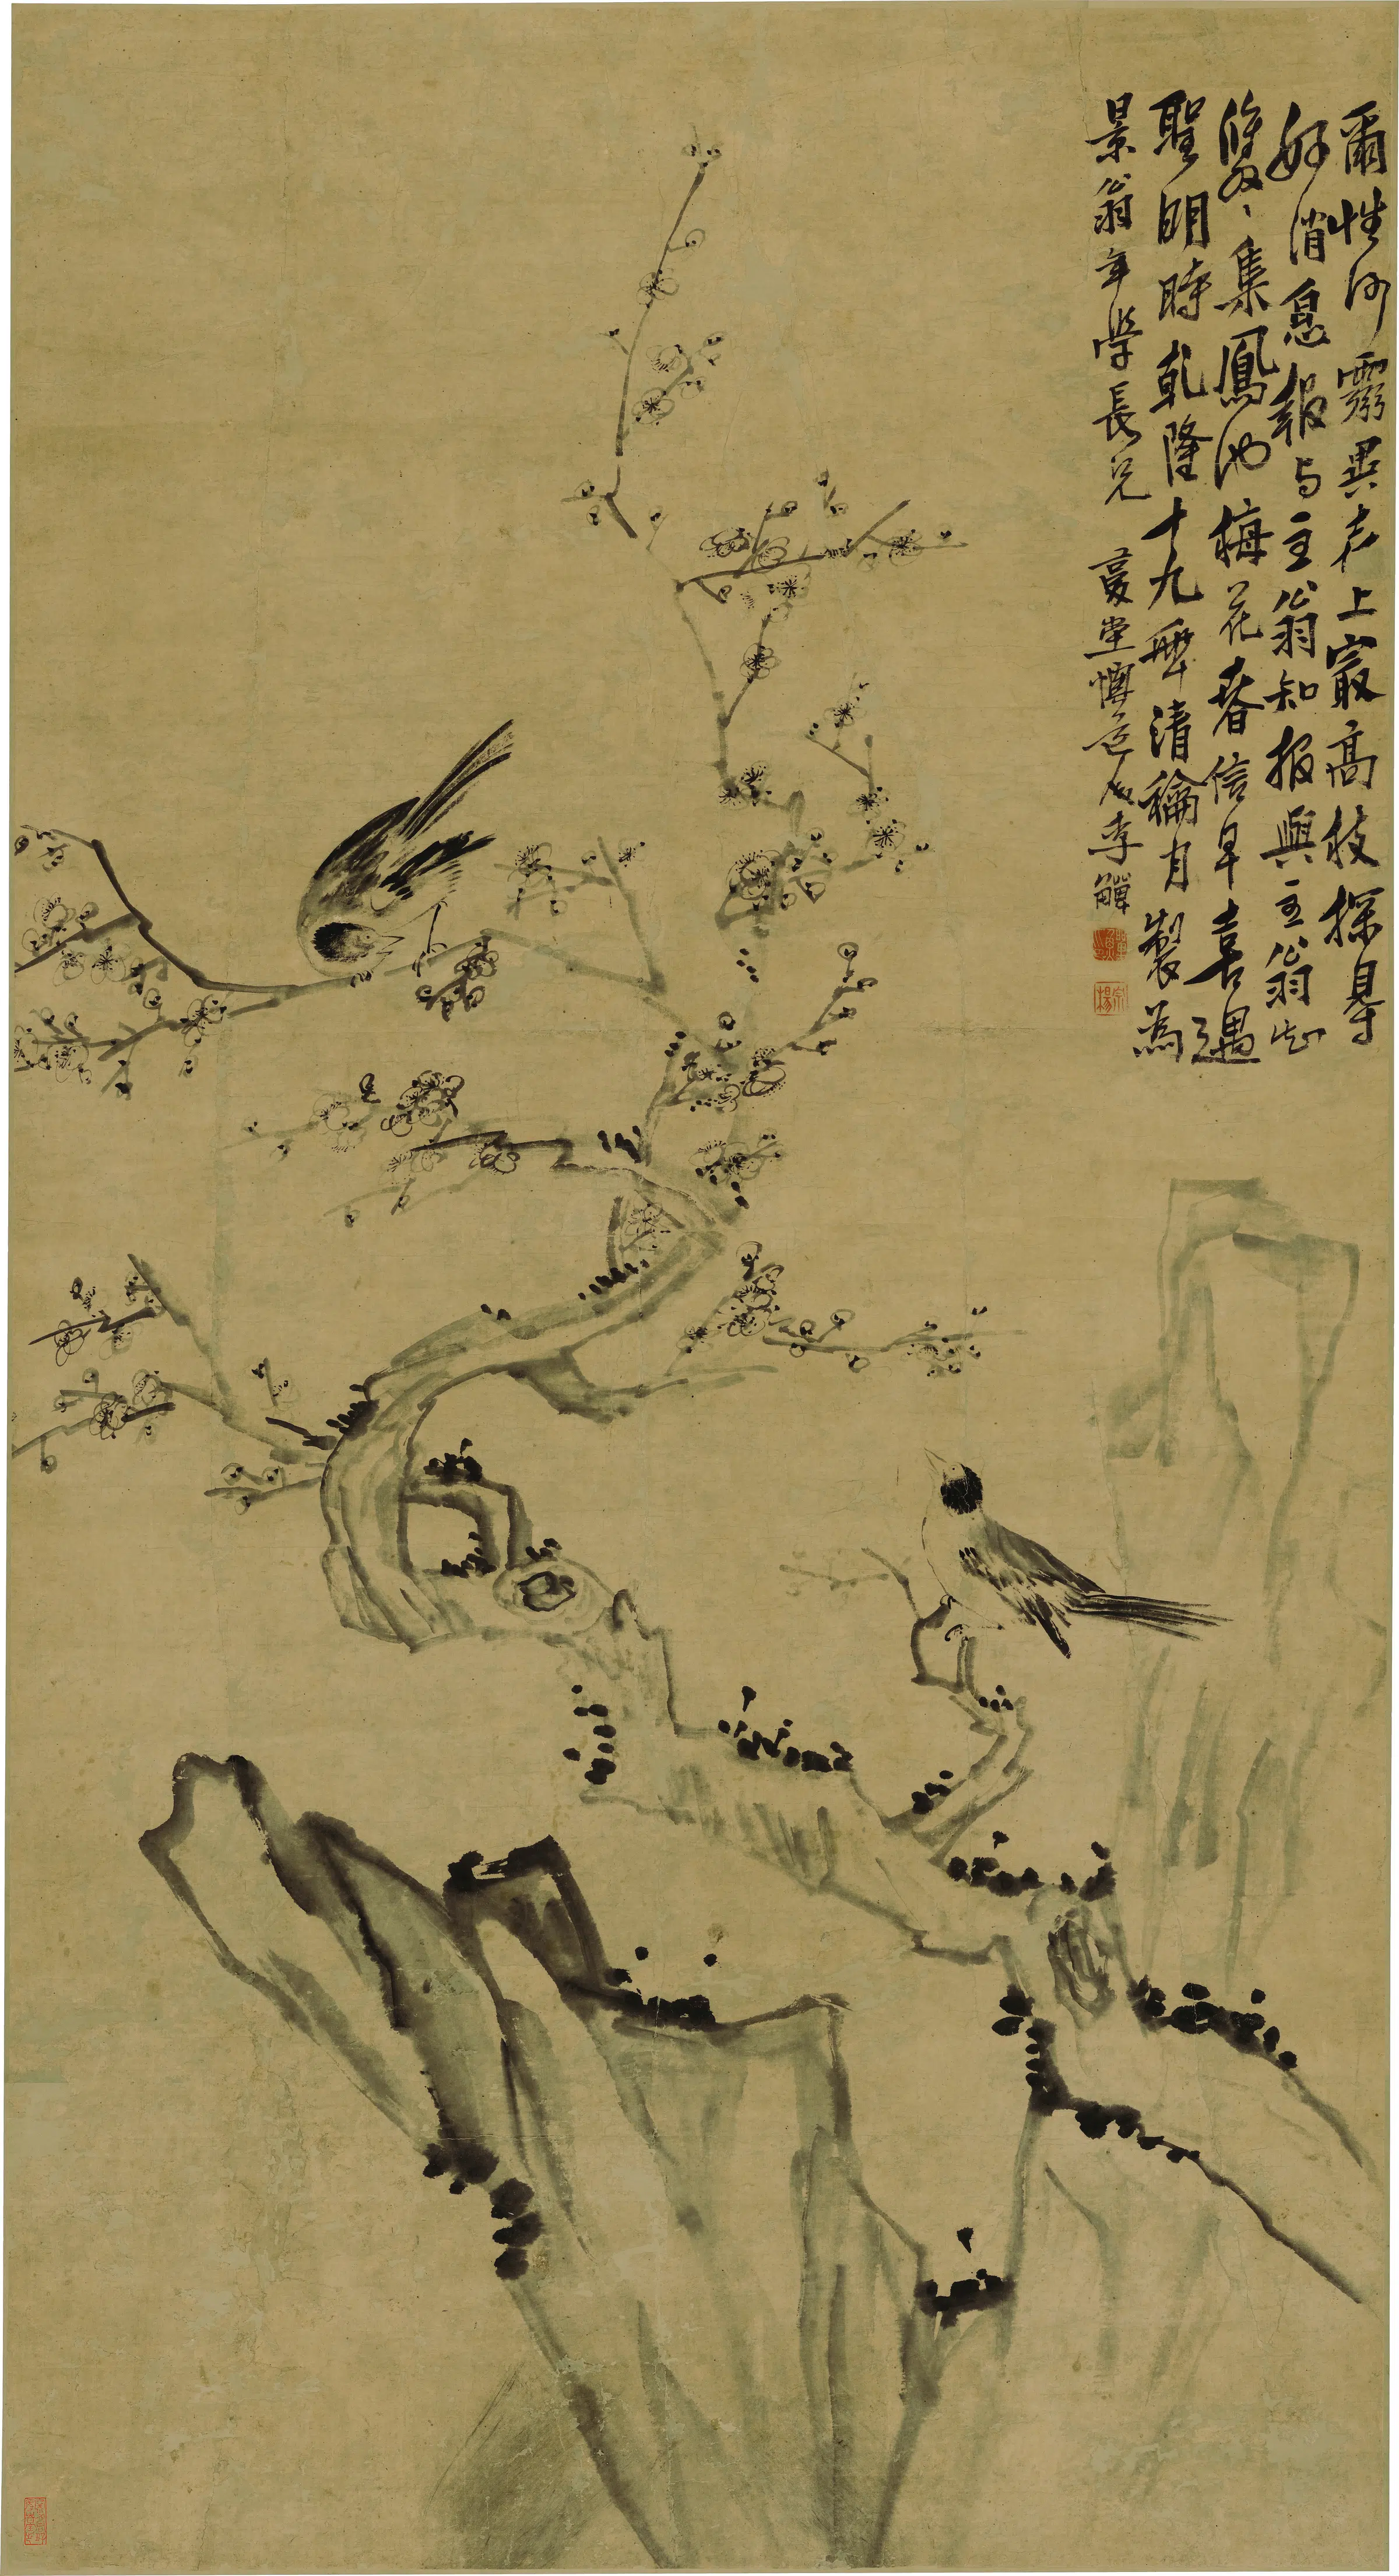 爾性何靈異去上㝡高枝探尋
好消息報与主翁知报與主翁知
雙〻集鳳池梅花春信早喜遇
聖明時乾隆十九年清龢月製為
景翁年學長兄
復堂懊道人李鱓
宗揚